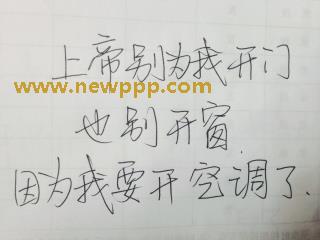 上帝别为我开门
www.newppp.com
也别开窗.
因为我要开空调了.